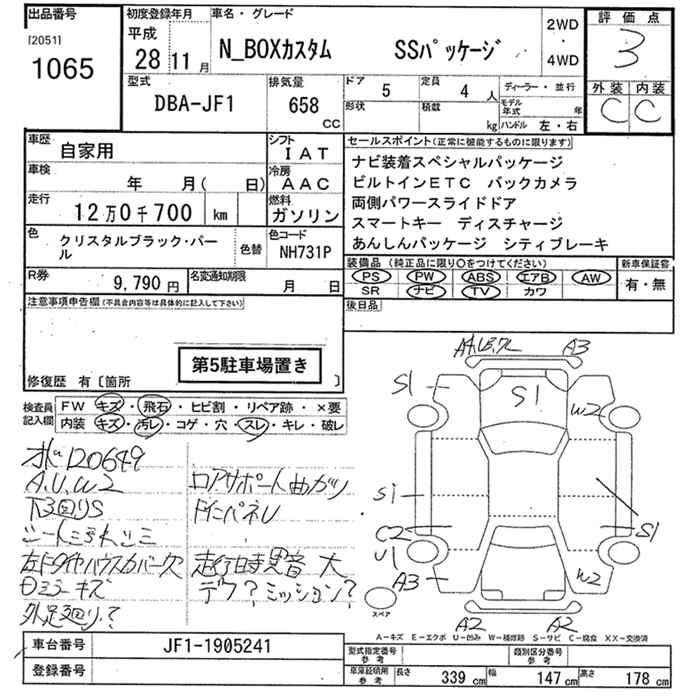 出品番号
[2051]
1065
初度登録年月
平成
28 11 月
車名・グレード
N_BOXカスタム SSパッケージ
2WD
・
4WD
評価点
3
外装 内装
C C
型式
DBA-JF1
排気量
658
cc
ドア
5
定員
4 人
形状
積載
kg
ディーラー・並行
モデル
年式 年
ハンドル 左・右
車歴
自家用
シフト
IAT
車検
年 月( 日)
冷房
AAC
走行
12万0千700 km
燃料
ガソリン
色
クリスタルブラック・パール
色替
色コード
NH731P
R券
9,790 円
名変通知期限
月 日
セールスポイント(正常に機能するものに限ります)
ナビ装着スペシャルパッケージ
ビルトインETC バックカメラ
両側パワースライドドア
スマートキー ディスチャージ
あんしんパッケージ シティブレーキ
装備品(純正品に限り○をつけてください)
PS PW ABS エアB AW
SR ナビ TV カワ
新車保証書
有・無
後日品
注意事項申告欄(不具合内容等は具体的に記入して下さい)
第5駐車場置き
修復歴 有〔箇所 〕
検査員
記入欄
FW キズ・飛石・ヒビ割・リペア跡・×要
内装 キズ・汚レ・コゲ・穴・スレ・キレ・破レ
水 120649
A.U.W2
下回りS
左Fタイヤハウスカバー欠
ミラーキズ
ロアサポート曲ガリ
走行時異音 大
デフ?ミッション?
A3
S1
S1
W2
S1
C2
U1
A3
S1
W2
A2
A2
スペア
A-キズ E-エクボ U-凹み W-補修跡 S-サビ C-腐食 XX-交換済
車台番号
JF1-1905241
登録番号
型式指定番号
参考
類別区分番号
参考
車庫証明用
参考
長さ 339 cm 幅 147 cm 高さ 178 cm